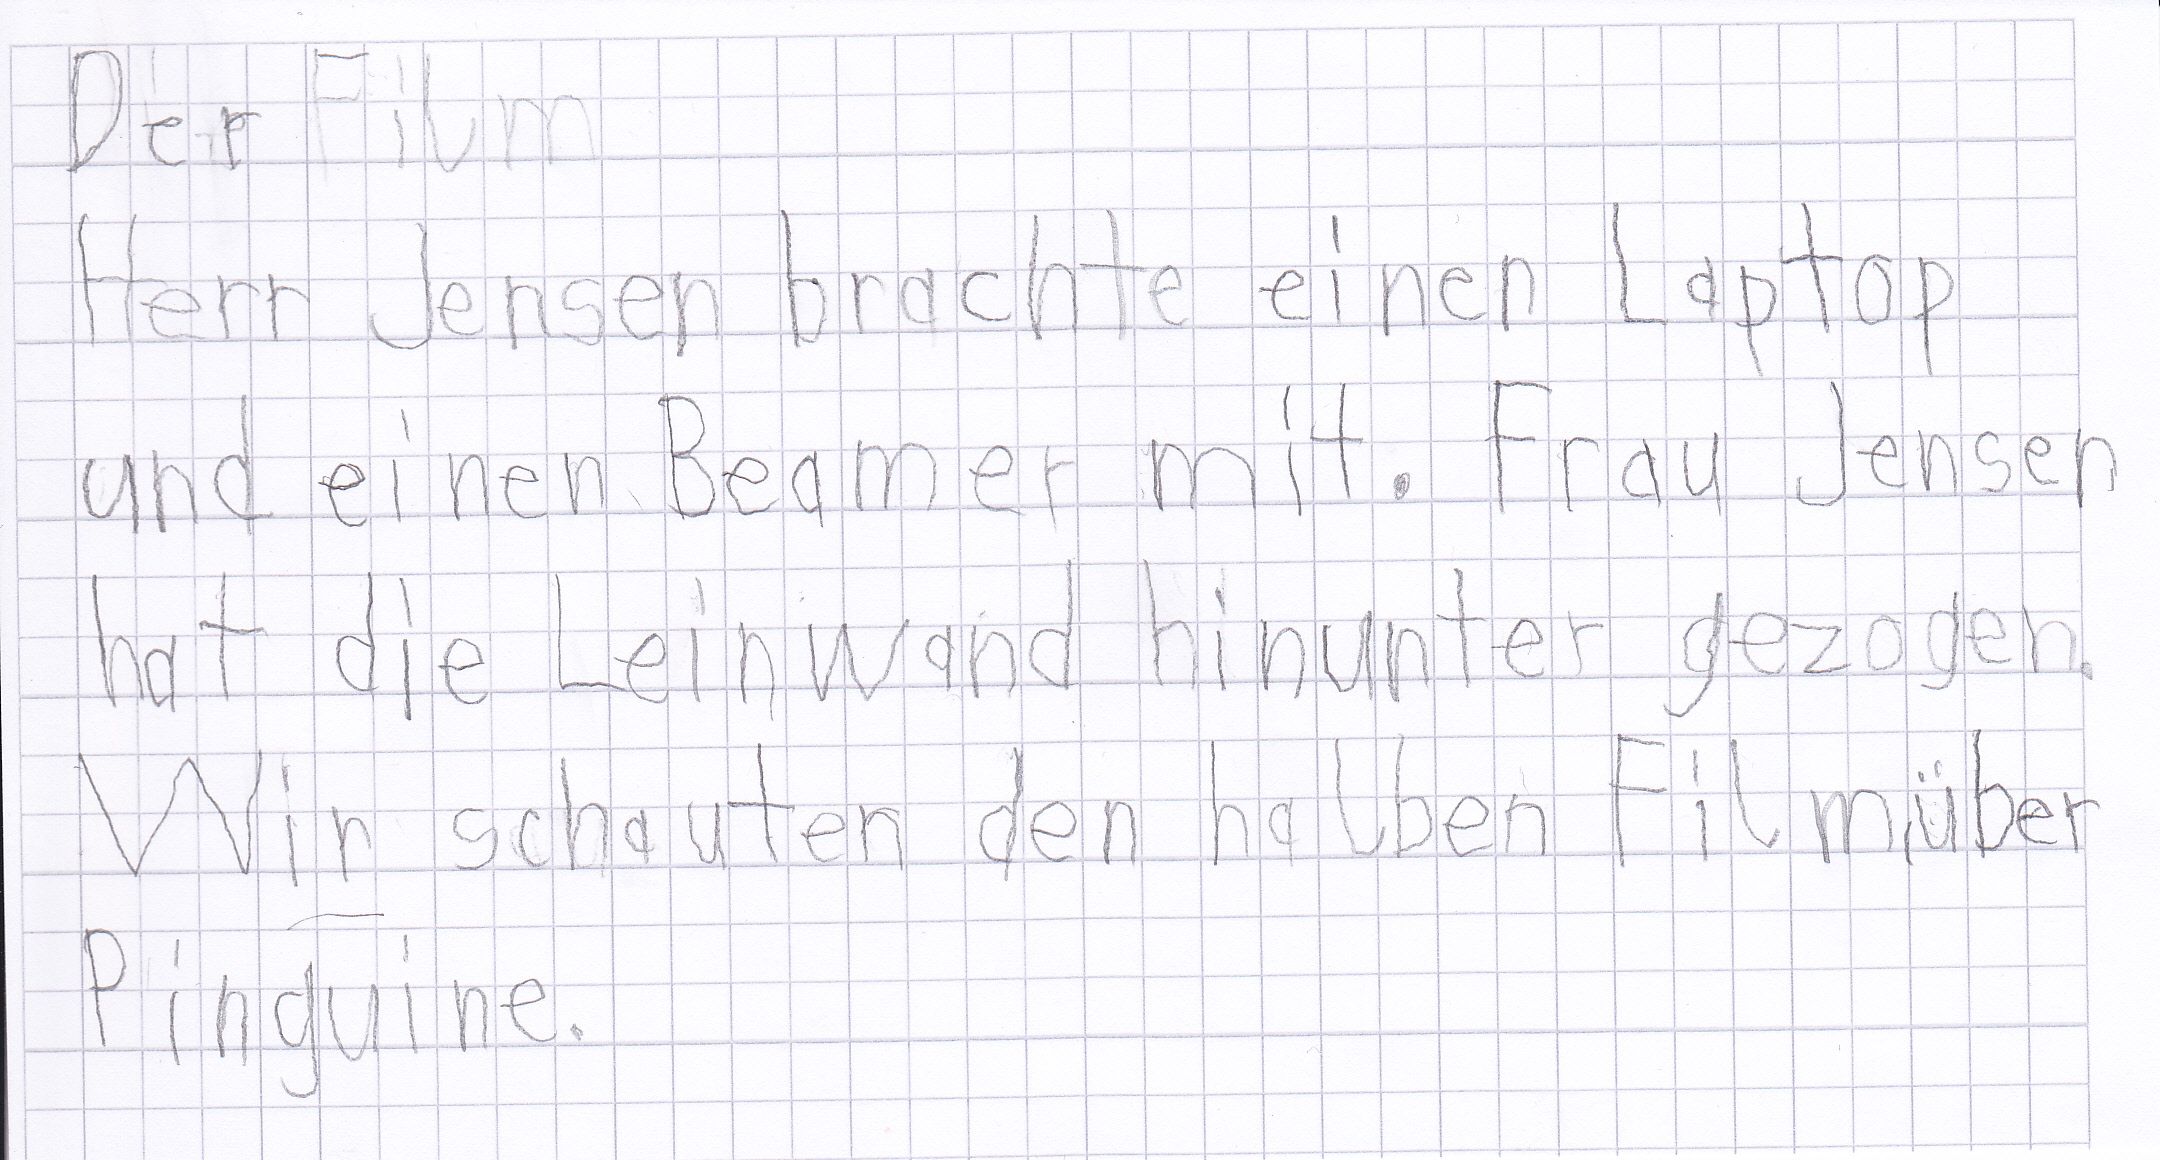 Der Film
Herr Jensen brachte einen Laptop
und einen Beamer mit. Frau Jensen
hat die Leinwand hinunter gezogen.
Wir schauten den halben Film über
Pinguine.